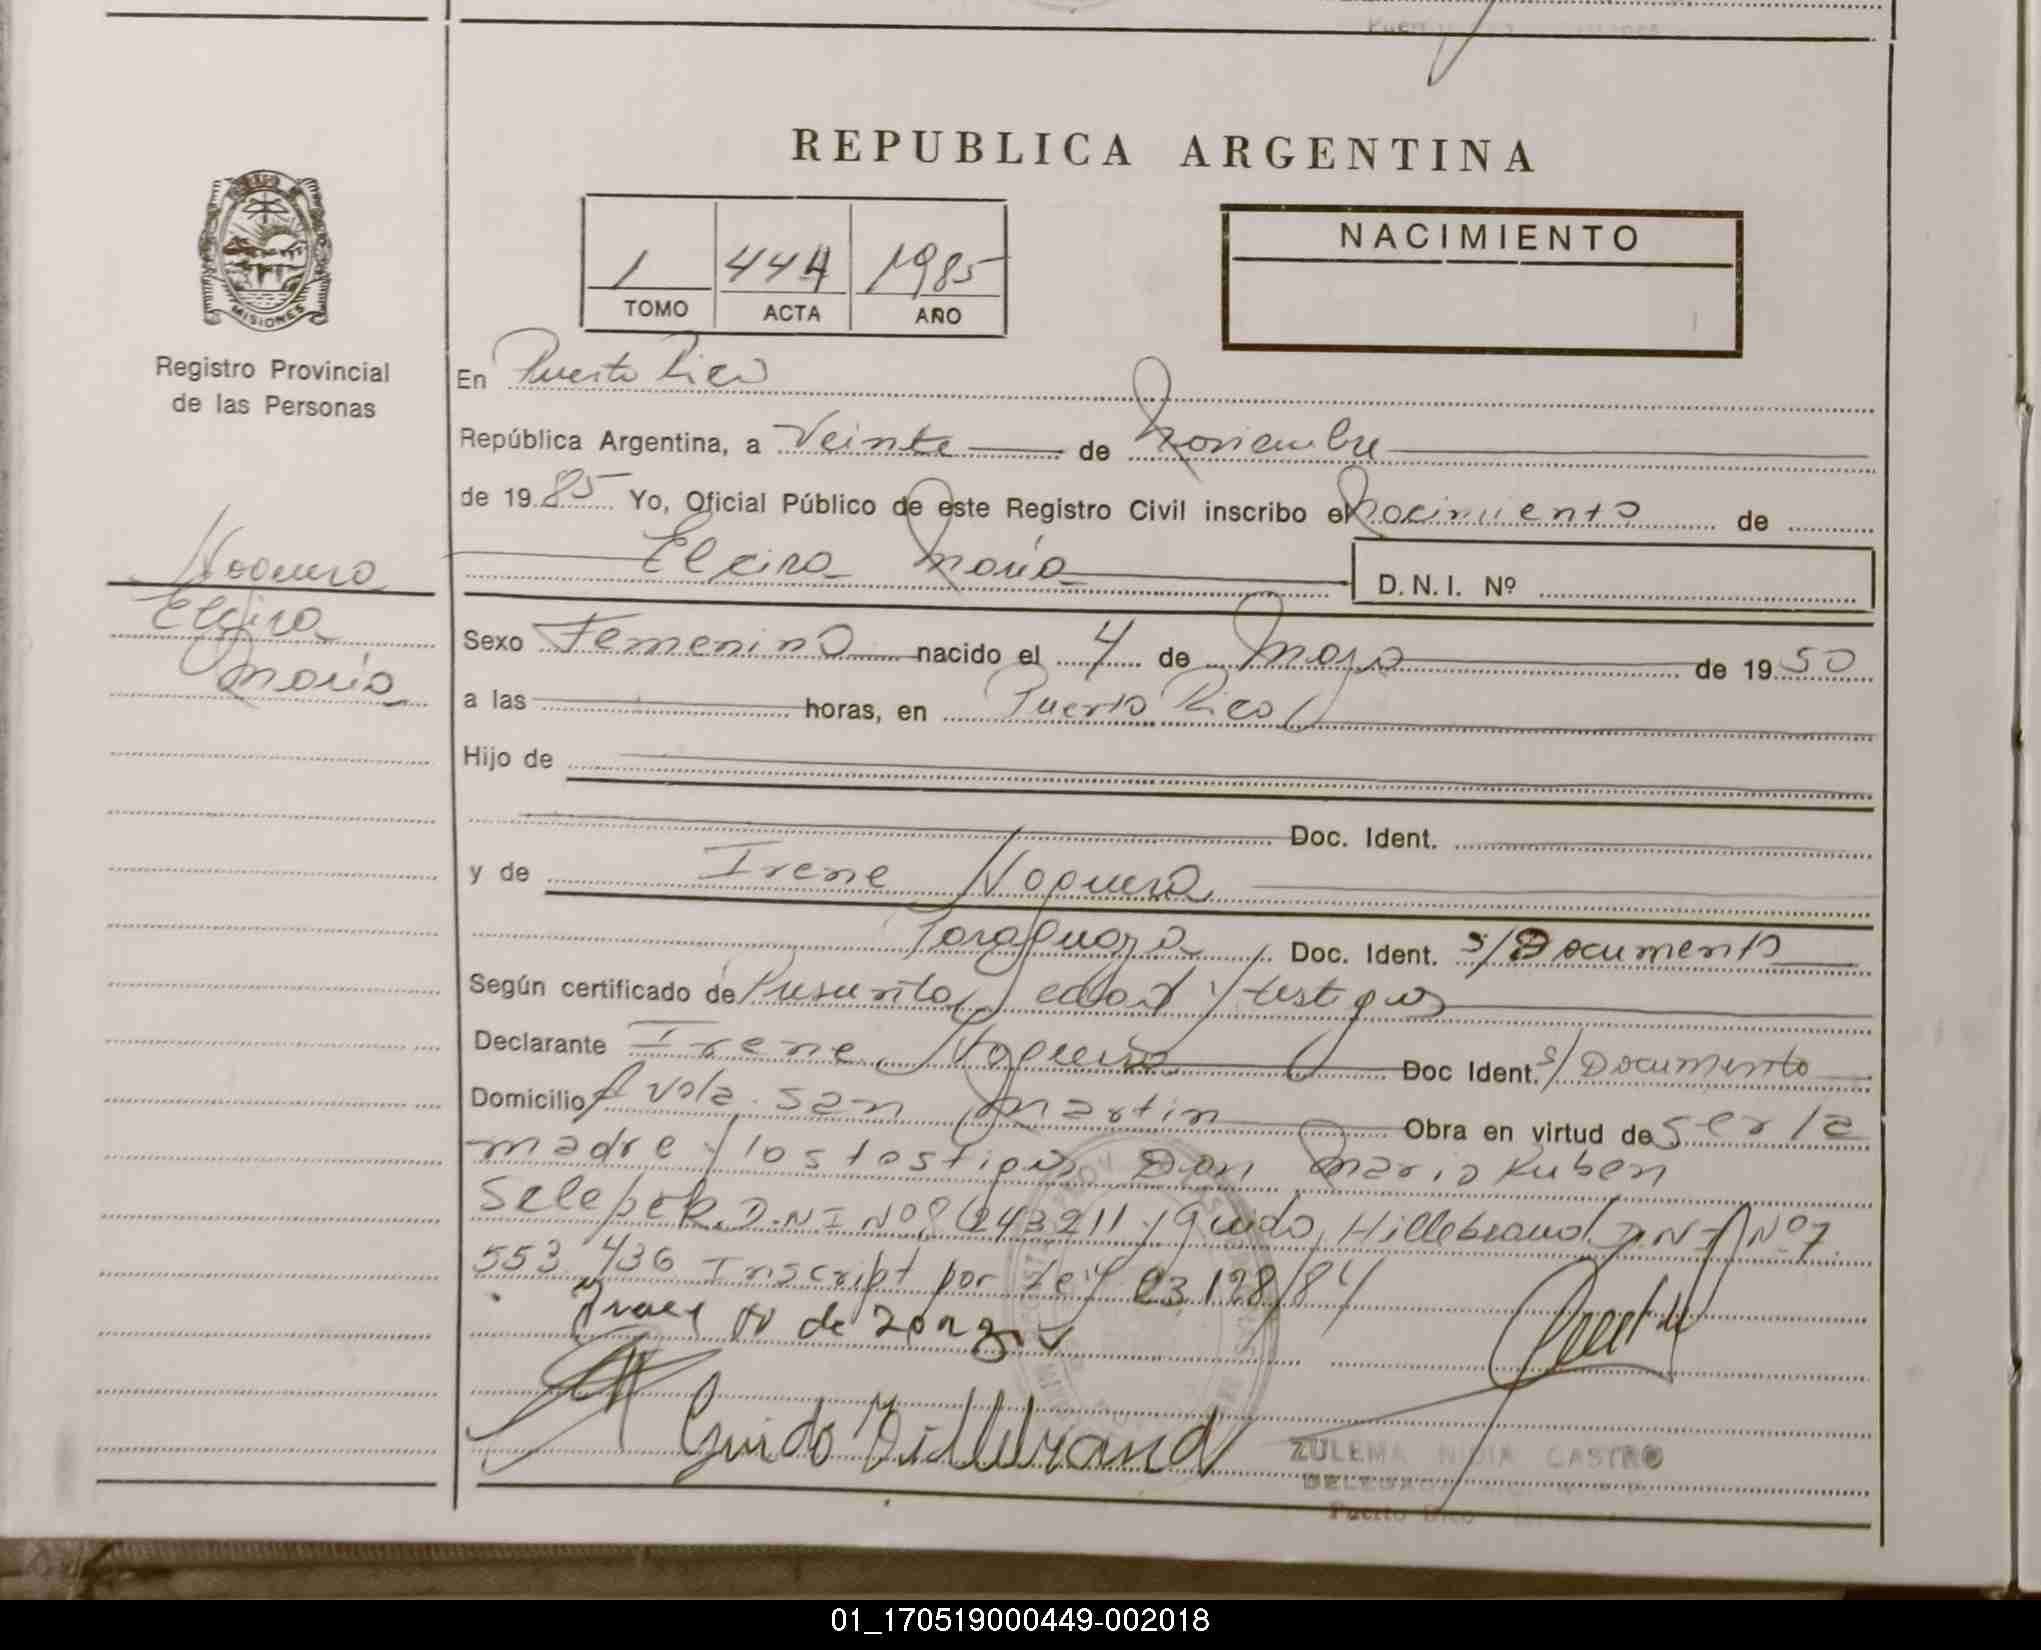 REPUBLICA ARGENTINA
1 444 1985
TOMO ACTA AÑO
NACIMIENTO
MISIONES
Registro Provincial
de las Personas
Noguera
Elcira
María
En Puerto Rico
República Argentina, a Veinte de Noviembre
de 1985 Yo, Oficial Público de este Registro Civil inscribo el Nacimiento de
Elcira María D.N.I. Nº
Sexo Femenino nacido el 4 de Mayo de 1950
a las horas, en Puerto Rico
Hijo de
Doc. Ident.
y de Irene Noguera
Paraguaya Doc. Ident. s/Documento
Según certificado de Presunta edad y testigos
Declarante Irene Noguera Doc Ident. s/Documento
Domicilio Avda. San Martin Obra en virtud de ser la
madre y los testigos Don Mario Ruben
D.N.I Nº 8 243211 y Guido Hillebrand D.N.I Nº 7
553 436 Inscript por Ley 23128/84
de
Guido Hillebrand
ZULEMA NIDIA CASTRO
Puerto Rico
01_170519000449-002018